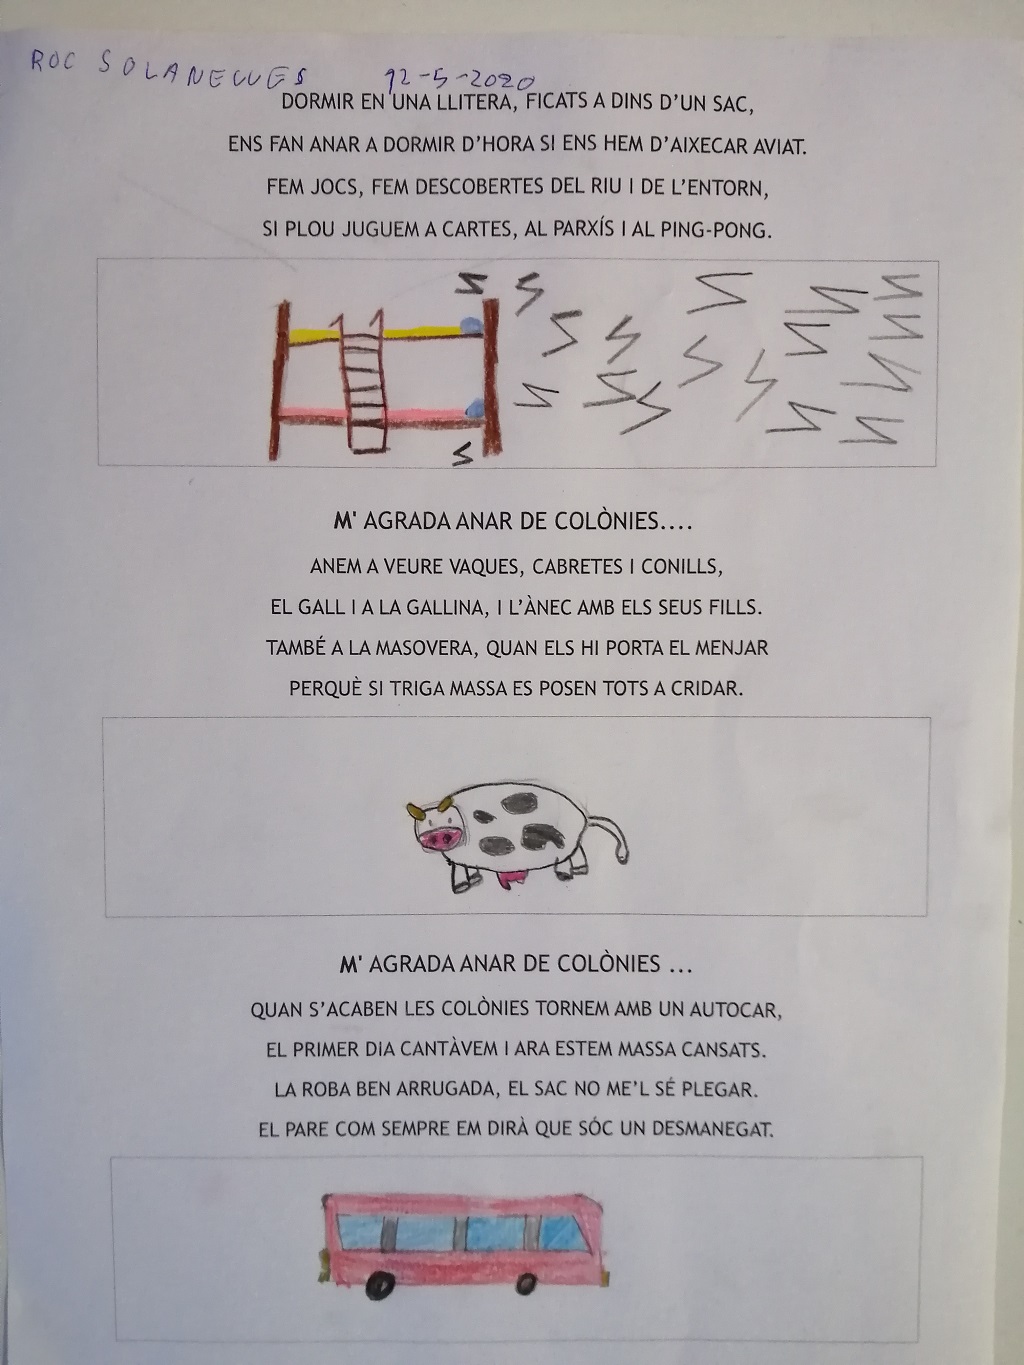 ROC SOLANELLES 12-5-2020
DORMIR EN UNA LLITERA, FICATS A DINS D'UN SAC,
ENS FAN ANAR A DORMIR D'HORA SI ENS HEM D'AIXECAR AVIAT.
FEM JOCS, FEM DESCOBERTES DEL RIU I DE L'ENTORN,
SI PLOU JUGUEM A CARTES, AL PARXÍS I AL PING-PONG.
M' AGRADA ANAR DE COLÒNIES....
ANEM A VEURE VAQUES, CABRETES I CONILLS,
EL GALL I A LA GALLINA, I L'ÀNEC AMB ELS SEUS FILLS.
TAMBÉ A LA MASOVERA, QUAN ELS HI PORTA EL MENJAR
PERQUÈ SI TRIGA MASSA ES POSEN TOTS A CRIDAR.
M' AGRADA ANAR DE COLÒNIES ...
QUAN S'ACABEN LES COLÒNIES TORNEM AMB UN AUTOCAR,
EL PRIMER DIA CANTÀVEM I ARA ESTEM MASSA CANSATS.
LA ROBA BEN ARRUGADA, EL SAC NO ME'L SÉ PLEGAR.
EL PARE COM SEMPRE EM DIRÀ QUE SÓC UN DESMANEGAT.